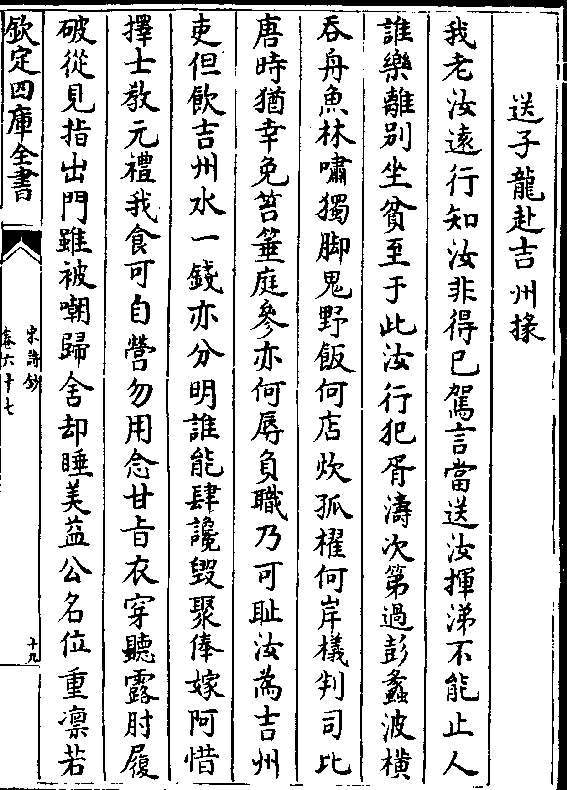 送子龍赴吉州掾
我老汝遠行知汝非得已駕言當送汝揮涕不能止人
誰樂離别坐貧至于此汝行犯胥濤次第過彭蠡波橫
吞舟魚林嘯獨脚鬼野飯何店炊孤櫂何岸檥判司比
唐時猶幸免笞箠庭參亦何辱負職乃可耻汝為吉州
吏但飲吉州水一錢亦分明誰能肆讒毀聚俸嫁阿惜
擇士敎元禮我食可自營勿用念甘旨衣穿聽露肘履
破從見指出門雖被嘲歸舍却睡美益公名位重凛若
欽定四庫全書
宋詩鈔
卷六十七
十九